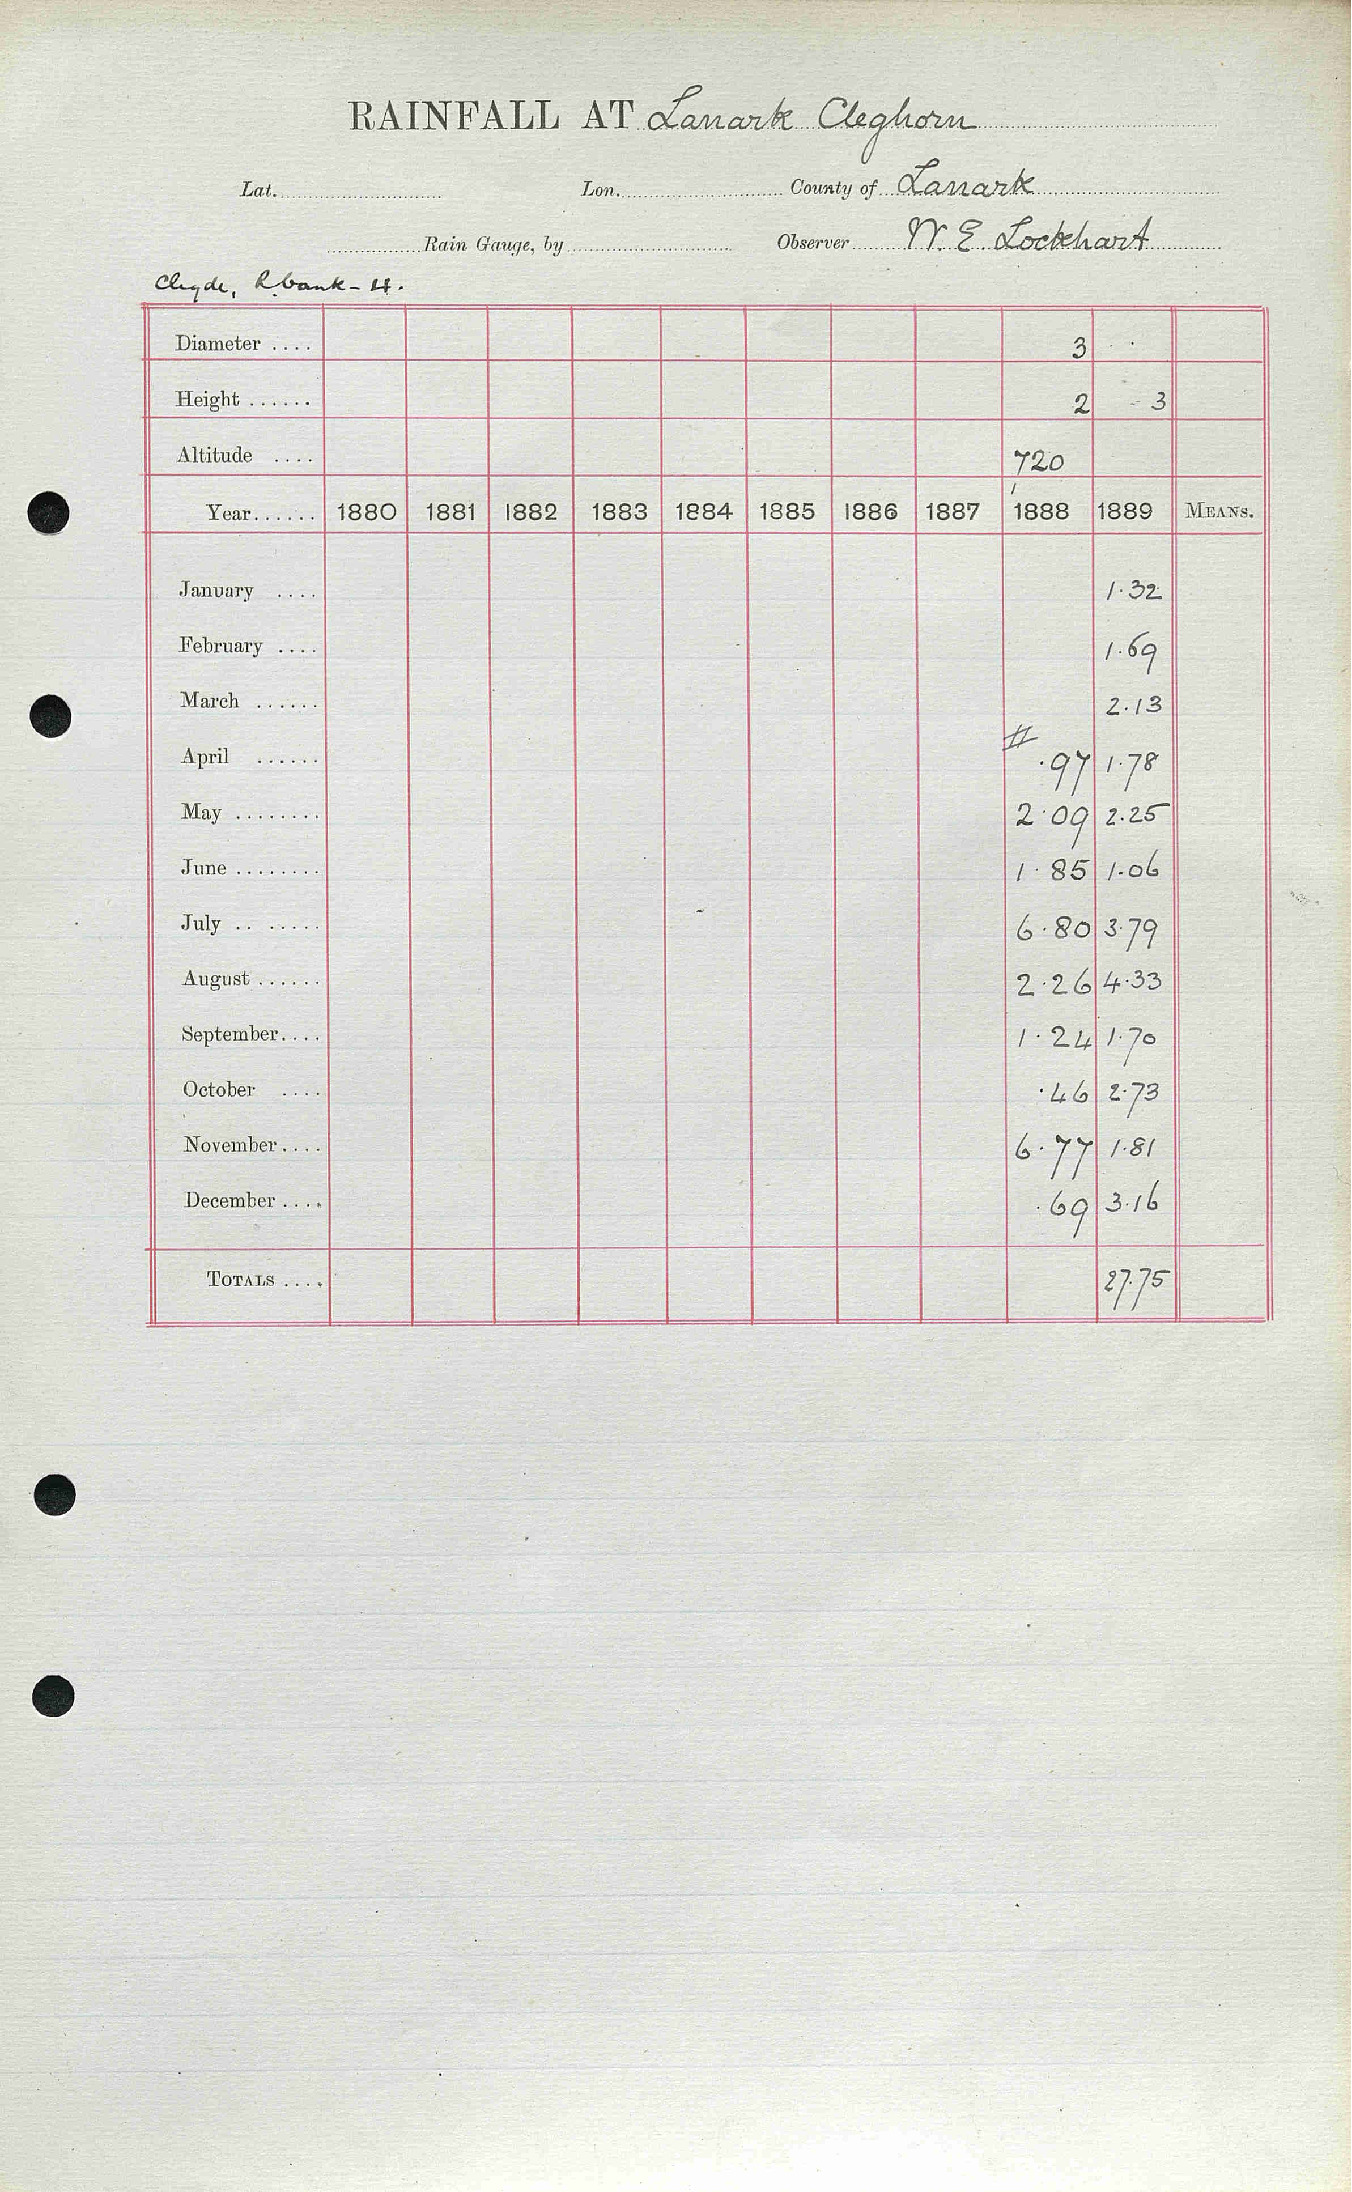 RAINFALL AT Lanark Cleghorn
Lat. Lon. County of Lanark
Rain Gauge, by Observer W. E. Lockhart
Clyde, R bank - 4.
Diameter .... 3
Height ...... 2 - 3
Altitude .... 720
Year...... 1880 1881 1882 1883 1884 1885 1886 1887 1888 1889 MEANS.
January .... 1.32
February .... 1.69
March ...... 2.13
April ...... # .97 1.78
May ........ 2.09 2.25
June ........ 1.85 1.06
July .. ..... 6.80 3.79
August ...... 2.26 4.33
September.... 1.24 1.70
October .... .46 2.73
November.... 6.77 1.81
December .... .69 3.16
TOTALS .... 27.75